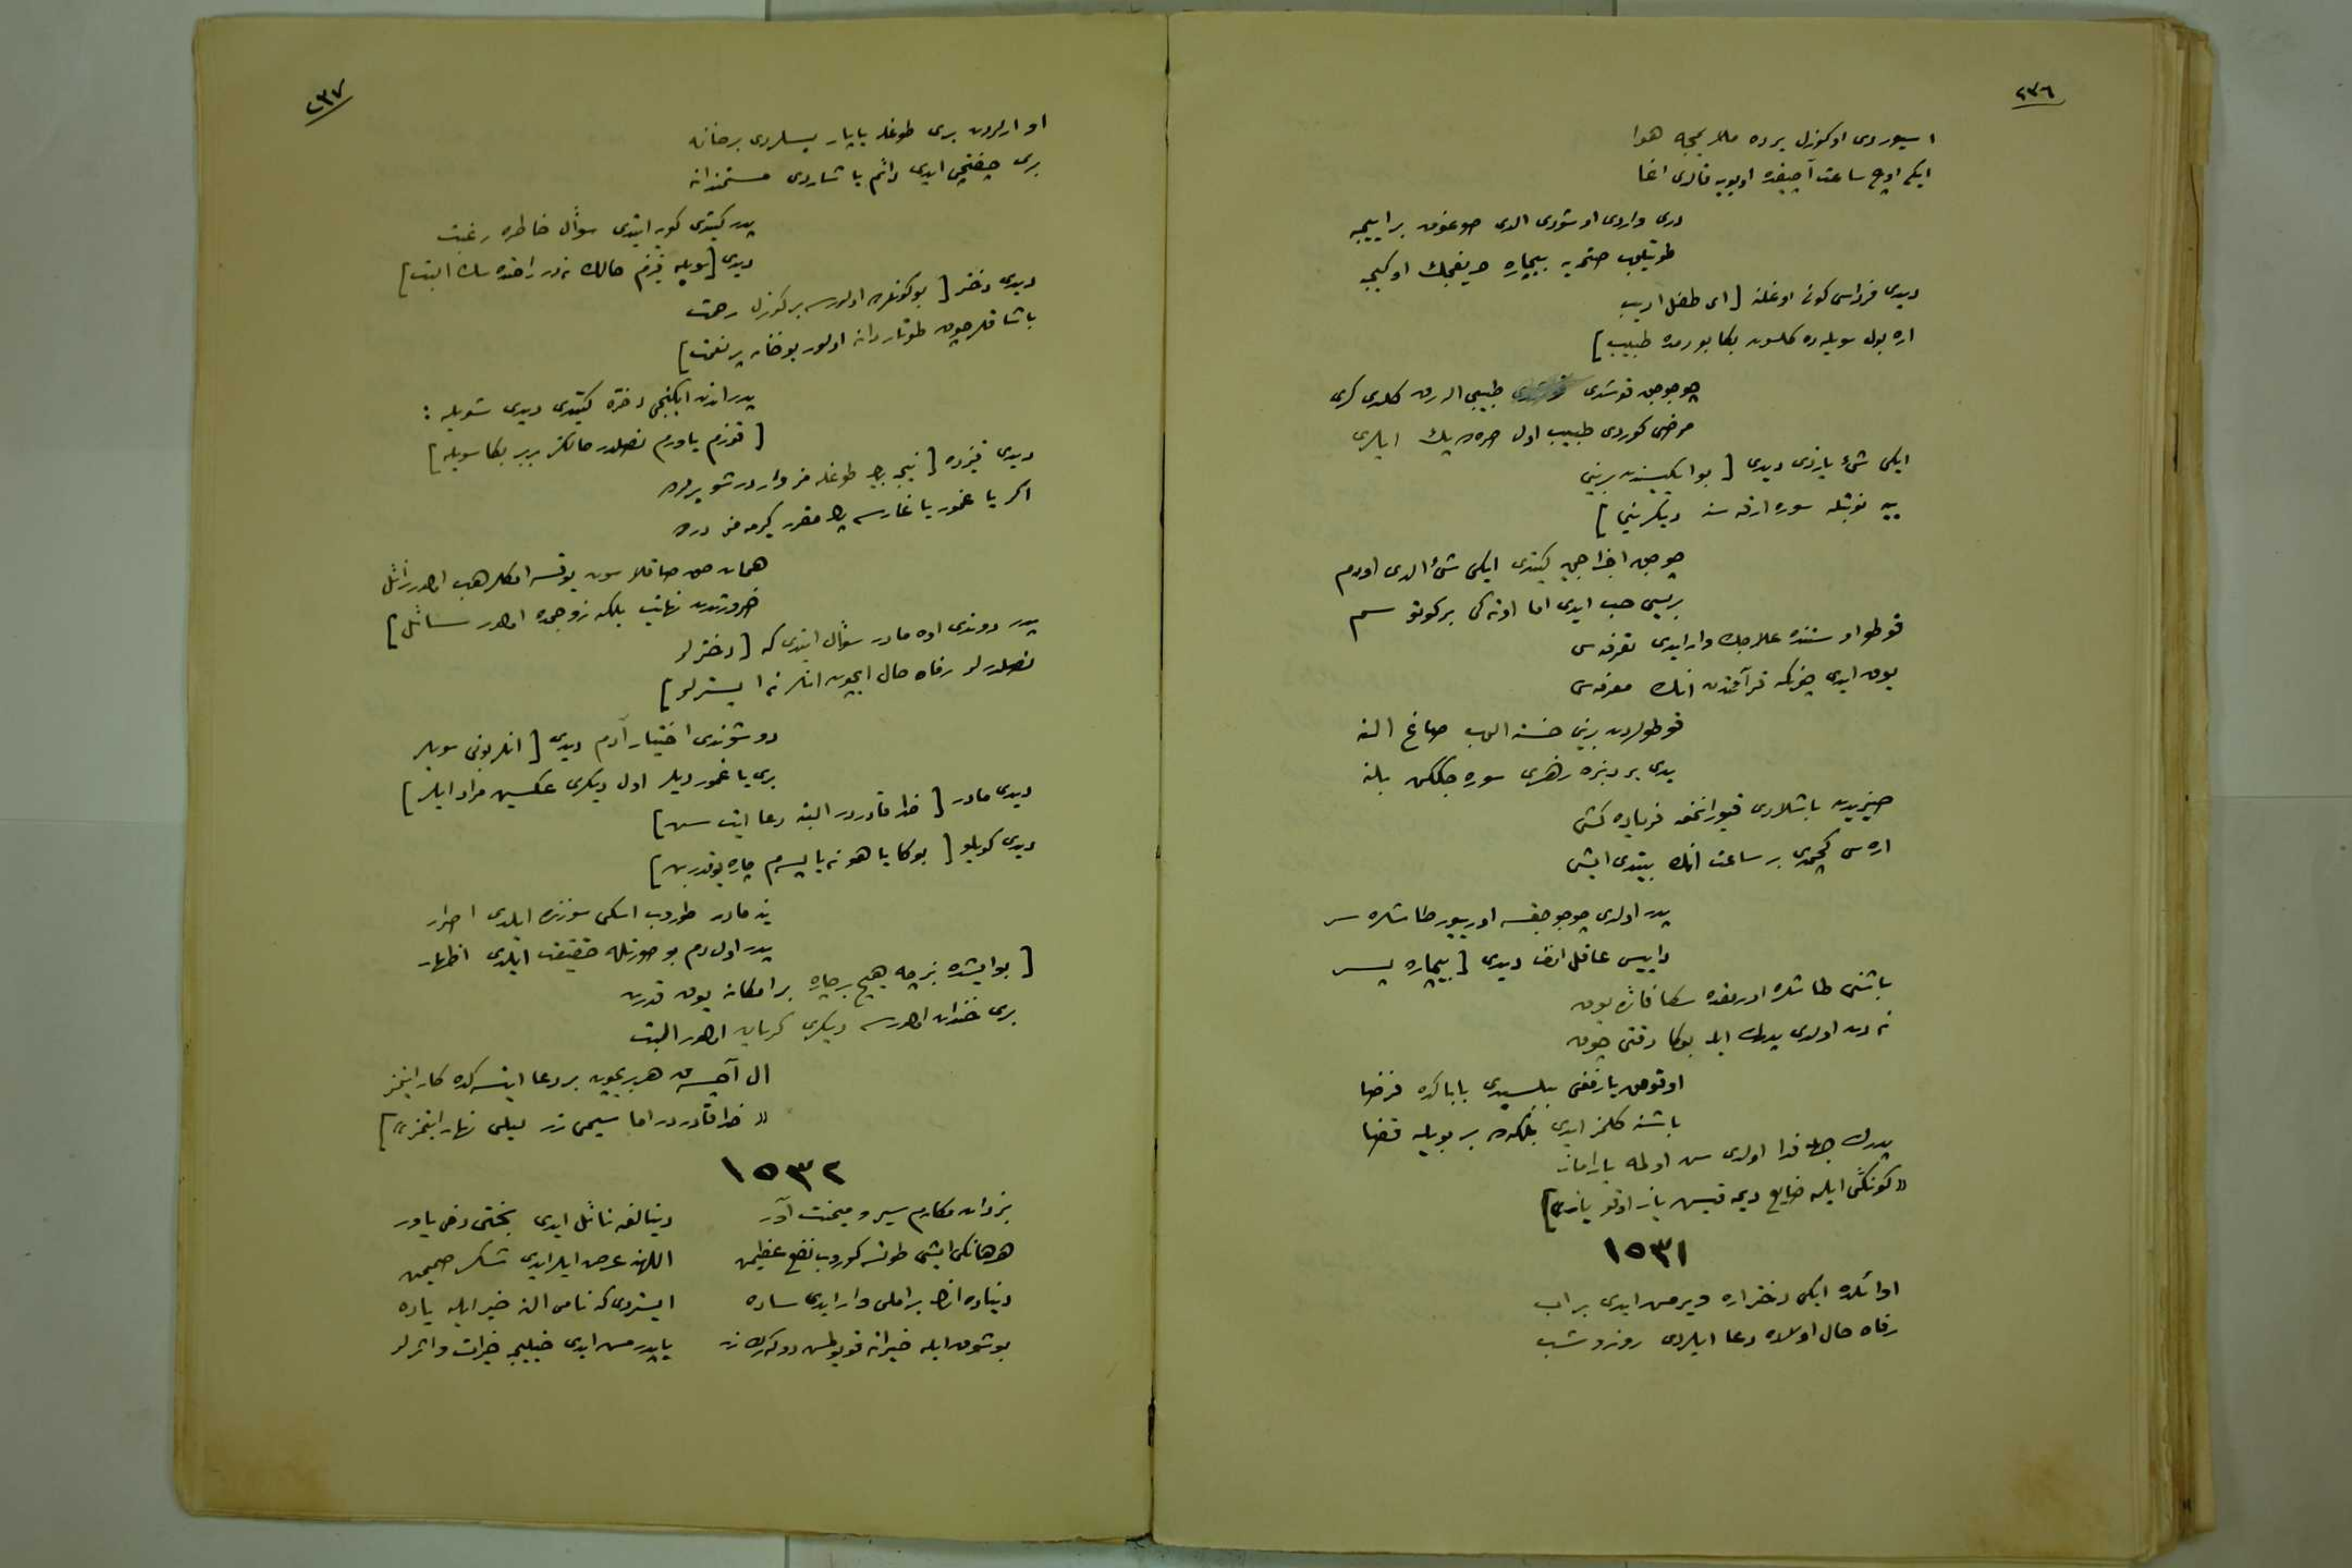 ٢٣٦
اسیوردی او کوزل یرده ملایمجه هوا
ایکی اوچ ساعت آچیقده اویویه قالدی اغا
دری واردی اوشودی الدی صوغوق بر اییجه
طوتیلوب صتمه‌یه بیچاره حریفجك او کیجه
دیدی فرداسی کونی اوغلنه [ای طفل ادیب
اره بول سویله ده کلسون بکا بوردە طبیب]
چوجوق قوشدی طبیبی الدی کلدی کری
مرضی کوردی طبیب اول صره پك ایلری
ایکی شیء یازدی دیدی [بو ایکیسندن برینی
ییه نوبتله سوره ارقه سنه دیکرینی]
چوجوق اجزاجی یه کیتدی ایکی شیء الدی اودم
بریسی حب ایدی اما اوته کی بر کوتو سم
قوطو اوستنده علامجك وار ایدی تفرقه سی
یوق ایدی چونکه قرآقدن انك معرفه سی
قوطولردن برینی خسته الوب صاغ النه
یدی بر دنبره زهری سوره جککن بلنه
باشلادی قیورانمغه فریاده کشی
اره سی کچمدی بر ساعت انك بیتدی ایشی
پدر اولدی چوجوجقسه اوریور طاشلره سر
دایيسی عاقل انك دیدی [بیچاره پسر
باشنی طاشلره اورمقده سکا فائده یوق
نه دن اولدی پدرك ایله بوکا دقتی چوق
اوقومق یازمغی بیلسیدی باباکده فرضا
باشنه کلمز ایدی بلکه ده بر بویله قضا
پدرك جهله فدا اولدی سن اولمه یارامان
«کونکی ایلمه ضایع دیمه قیش یاز اوقو یاز»]
١٥٣١
اوائلده ایکی دختر اره ویرمش ایدی بر اب
رفاه حال اولاده دعا ایلردی روز و شب
٢٣٧
او ارلردن بری طوغله یاپار بسلردی بر خانه
بری چفتچی ایدی دائم یاشاردی مستمندانه
پدر کیتدی کور ایتدی سوأل خاطره رغبت
دیدی [سویله قیزم حالك نه در راحتده سك البت]
دیدی دختر [بو کونلرده اولورسه بر کوزل رحمت
باشاقلر چوق طوتار دانه اولور بو خانه پر نعمت]
پدر اندن ایکنجی دختره کیتدی دیدی شویله :
[قوزم یاورم نصلدر حالکز بر بر بکا سویله]
دیدی قیزده [نیجه بیك طوغله مز واردر شو یرلرده
اکر یاغمور یاغارسه مقرر کیرمه مز درده
همان حق صاقلاسون یوقسه امکلر هب اولور زائل
ضرورتدن نهایت بلکه زوجمده اولور سائل]
پدر دوندی اوه مادر سؤال ایتدی که [دخترلر
نصلدرلر رفاه حال ایچون انلر نه ایسترلر]
دوشوندی اختیار آدم دیدی [انلر بونی سویلر
بری یاغمور دیلر اول دیکری عکسین مراد ایلر]
دیدی مادر [خدا قادردر البته دعا ایت سن]
دیدی کویلو [بوکا یاهو نه یاپسم چاره یوقدر بن]
ینه مادر طوروب اسکی سوزنده ایلدی اصرار
پدر اول دم بو صورتله حقیقت ایلدی اظهار
[بو ایشده بزجه هیچ بر چاره بر امکان یوق قدرت
بری خندان اولورسه دیکری کریان اولور البت
ال آچسه ق هر بری‌چون بر دعا ایتسه‌کده کار ایتمز
«خدا قادر در اما سیمی زر لیلی نهار ایتمز»]
١٥٣٢
بزدان مکارم سیر و میمنت آور
دیتالغه نائل ایدی بختی دخی یاور
هر هانکی ایشی طوتسه کوروب نفع عظیمن
اللهنه عرض ایلر ایدی شکر صمیمن
دنیاده انك بر املی وار ایدی ساده
ایستردی که نامی النه خیر ایله یاده
بو شوق ایله خیراته قویولمش دوکه رك زر
یاپدرمش ایدی خیلیجه خیرات و اثرلر